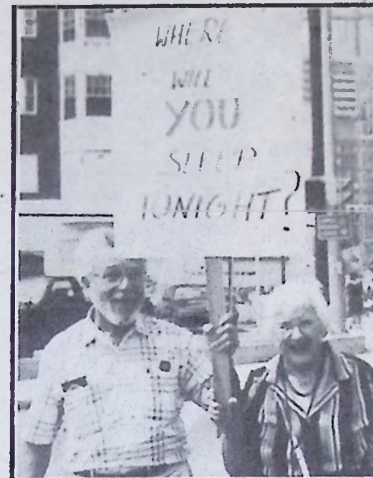 WHERE
WILL
YOU
SLEEP
TONIGHT?